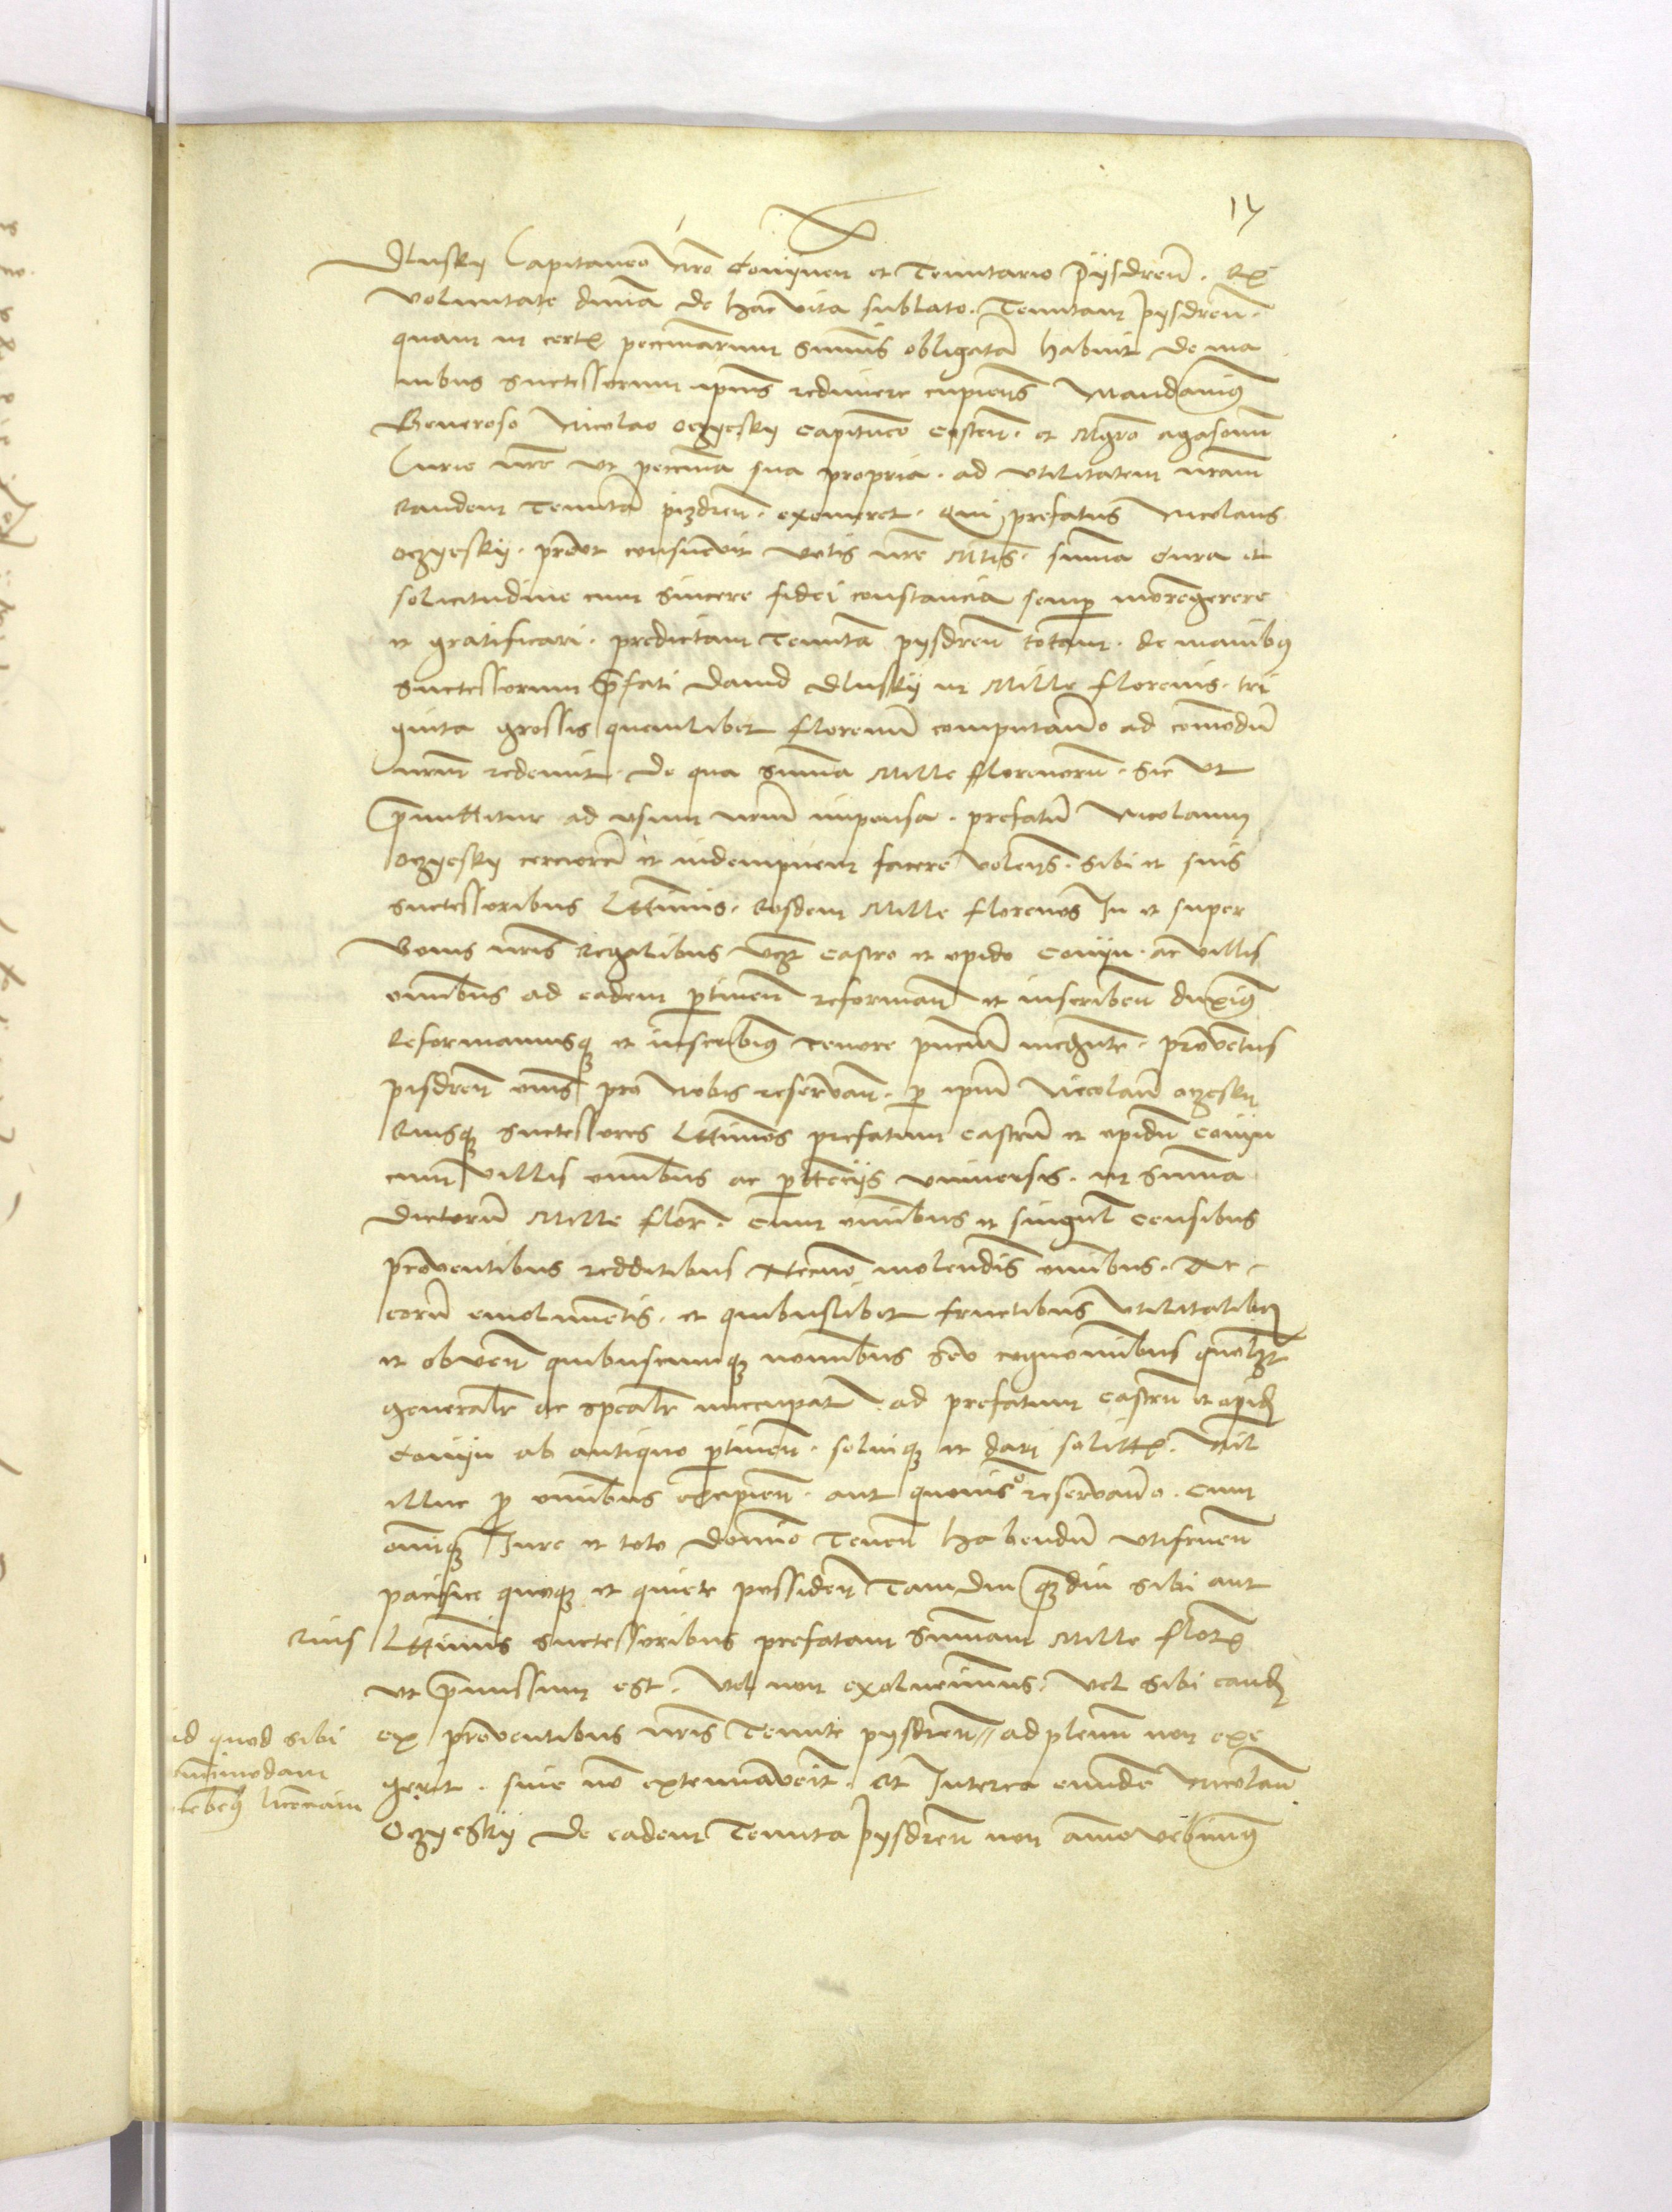 17
Dlusky Capitaneo nro Conijnen et Tenutario Pijsdren. Ex
voluntate divina de hac vita sublato. Tenutam Pysdren.
quam in cert pecuniarum summis obligatam habuit de ma
nibus successorum ipius redimere cupientes Mandavimus
Generoso Nicolao oczyesky capitaneo costen. et Mgro agasonum
Curie nre ut pecunia sua propria. ad utilitatem nram
eandem Tenutam pizdren. exoneret. Qui prefatus Nicolaus
oczyesky. prout consuevit votis nre Mtis. summa cura et
solicitudine cum sincere fidei constancia semper moregerere
et gratificari. predictam Tenutam pysdren totam. de manibus
successorum prefati David Dlusky in Mille florenis. tri
ginta grossis quemlibet florenum computando ad comodum
nrum redemit. de qua summa Mille florenorum. sic ut
premittitur ad usum nrum impensa. prefatum Nicolaum
oczyesky cerciorem et indempnem facere volentes. sibi et suis
successoribus lttimis. eosdem Mille florenos In et super
bonis nris Regalibus vcz castro et opido Conijn. ac villis
omnibus ad eadem pertinen reforman et inscriben duximus
Reformamusque et inscribimus tenore pncium mediante. proventus
pisdren omnes pro nobis reservan. per ipum Nicolaum oczesky
eiusque successores lttimos prefatum castrum et opidum Conijn
cum villis omnibus ac pertinenciis universis. in summa
dictorum Mille flor. cum omnibus et singul censibus
proventibus redditibus Necnon molendis omnibus. Ac
eorum emolumentis. et quibuslibet fructibus utilitatibus
et obven quibuscumque nominibus seu cognominibus quolibet
generalr ac specialr nuccupat ad prefatum castrum et opid
Conijn ab antiquo pertinen. solvique et dari solit. Nil
illuc pro omnibus excipien. aut quovismodo reservando. cum
omnique Iure et toto dominio Tenen habendum utifruen
pacifice quoque et quiete possiden Tamdiu quamdiu sibi aut
eius lttimis successoribus prefatam summam Mille flor
ut premissum est. vel non exolverimus. vel sibi eand
ex proventibus nris Tenute pysdren // ad plenum non exe
gerit. sive non extenuaverit. Et Interea eundem Nicolaum
Oczyesky de eadem Tenuta Pysdren non amovebimus
id quod sibi
licenciam